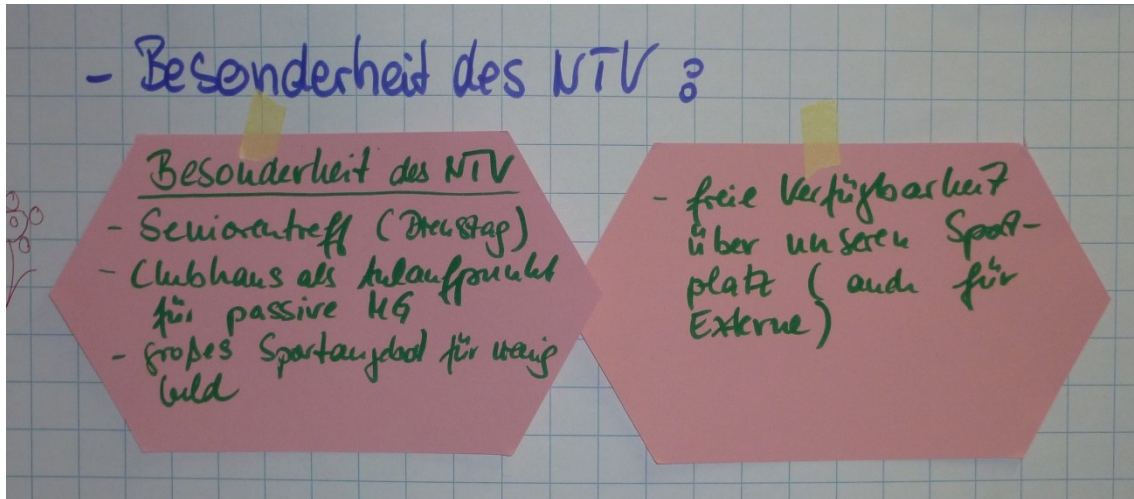 - Besonderheit des NTV :
Besonderheit des NTV
- Seniorentreff (Dienstag)
- Clubhaus als Anlaufpunkt
für passive MG
- großes Sportangebot für wenig
Geld
- freie Verfügbarkeit
über unseren Sport-
platz (auch für
Externe)